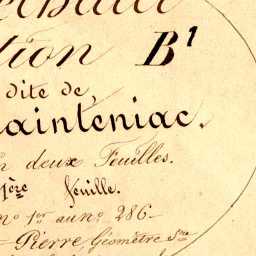 tion B¹
dite de
ainteniac.
n deux Feuilles.
1ère feuille.
n° 1er au n° 286.
Pierre Géomètre